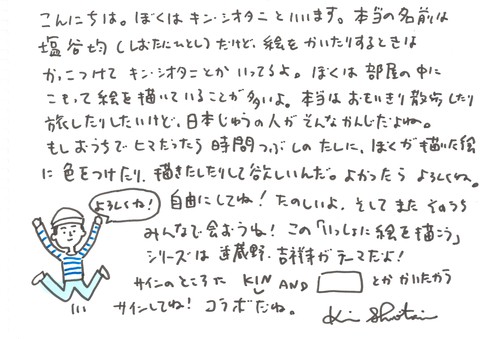 こんにちは。ぼくはキン・シオタニといいます。本当の名前は
塩谷均(しおたにひとし)だけど、絵をかいたりするときは
かっこつけてキン・シオタニとかいってるよ。ぼくは部屋の中に
こもって絵を描いていることが多いよ。本当はおもいきり散歩したり
旅したりしたいけど、日本じゅうの人がそんなかんじだよね。
もしおうちでヒマだったら時間つぶしのたしに、ぼくが描いた絵
に色をつけたり、描きたしたりして欲しいんだ。よかったらよろしくね。
よろしくね!
自由にしてね!たのしいよ。そしてまたそのうち
みんなで会おうね!この「いっしょに絵を描こう」
シリーズは武蔵野・吉祥寺がテーマだよ!
サインのところに KIN AND とかかいたから
サインしてね!コラボだね。
Kin Shiotani